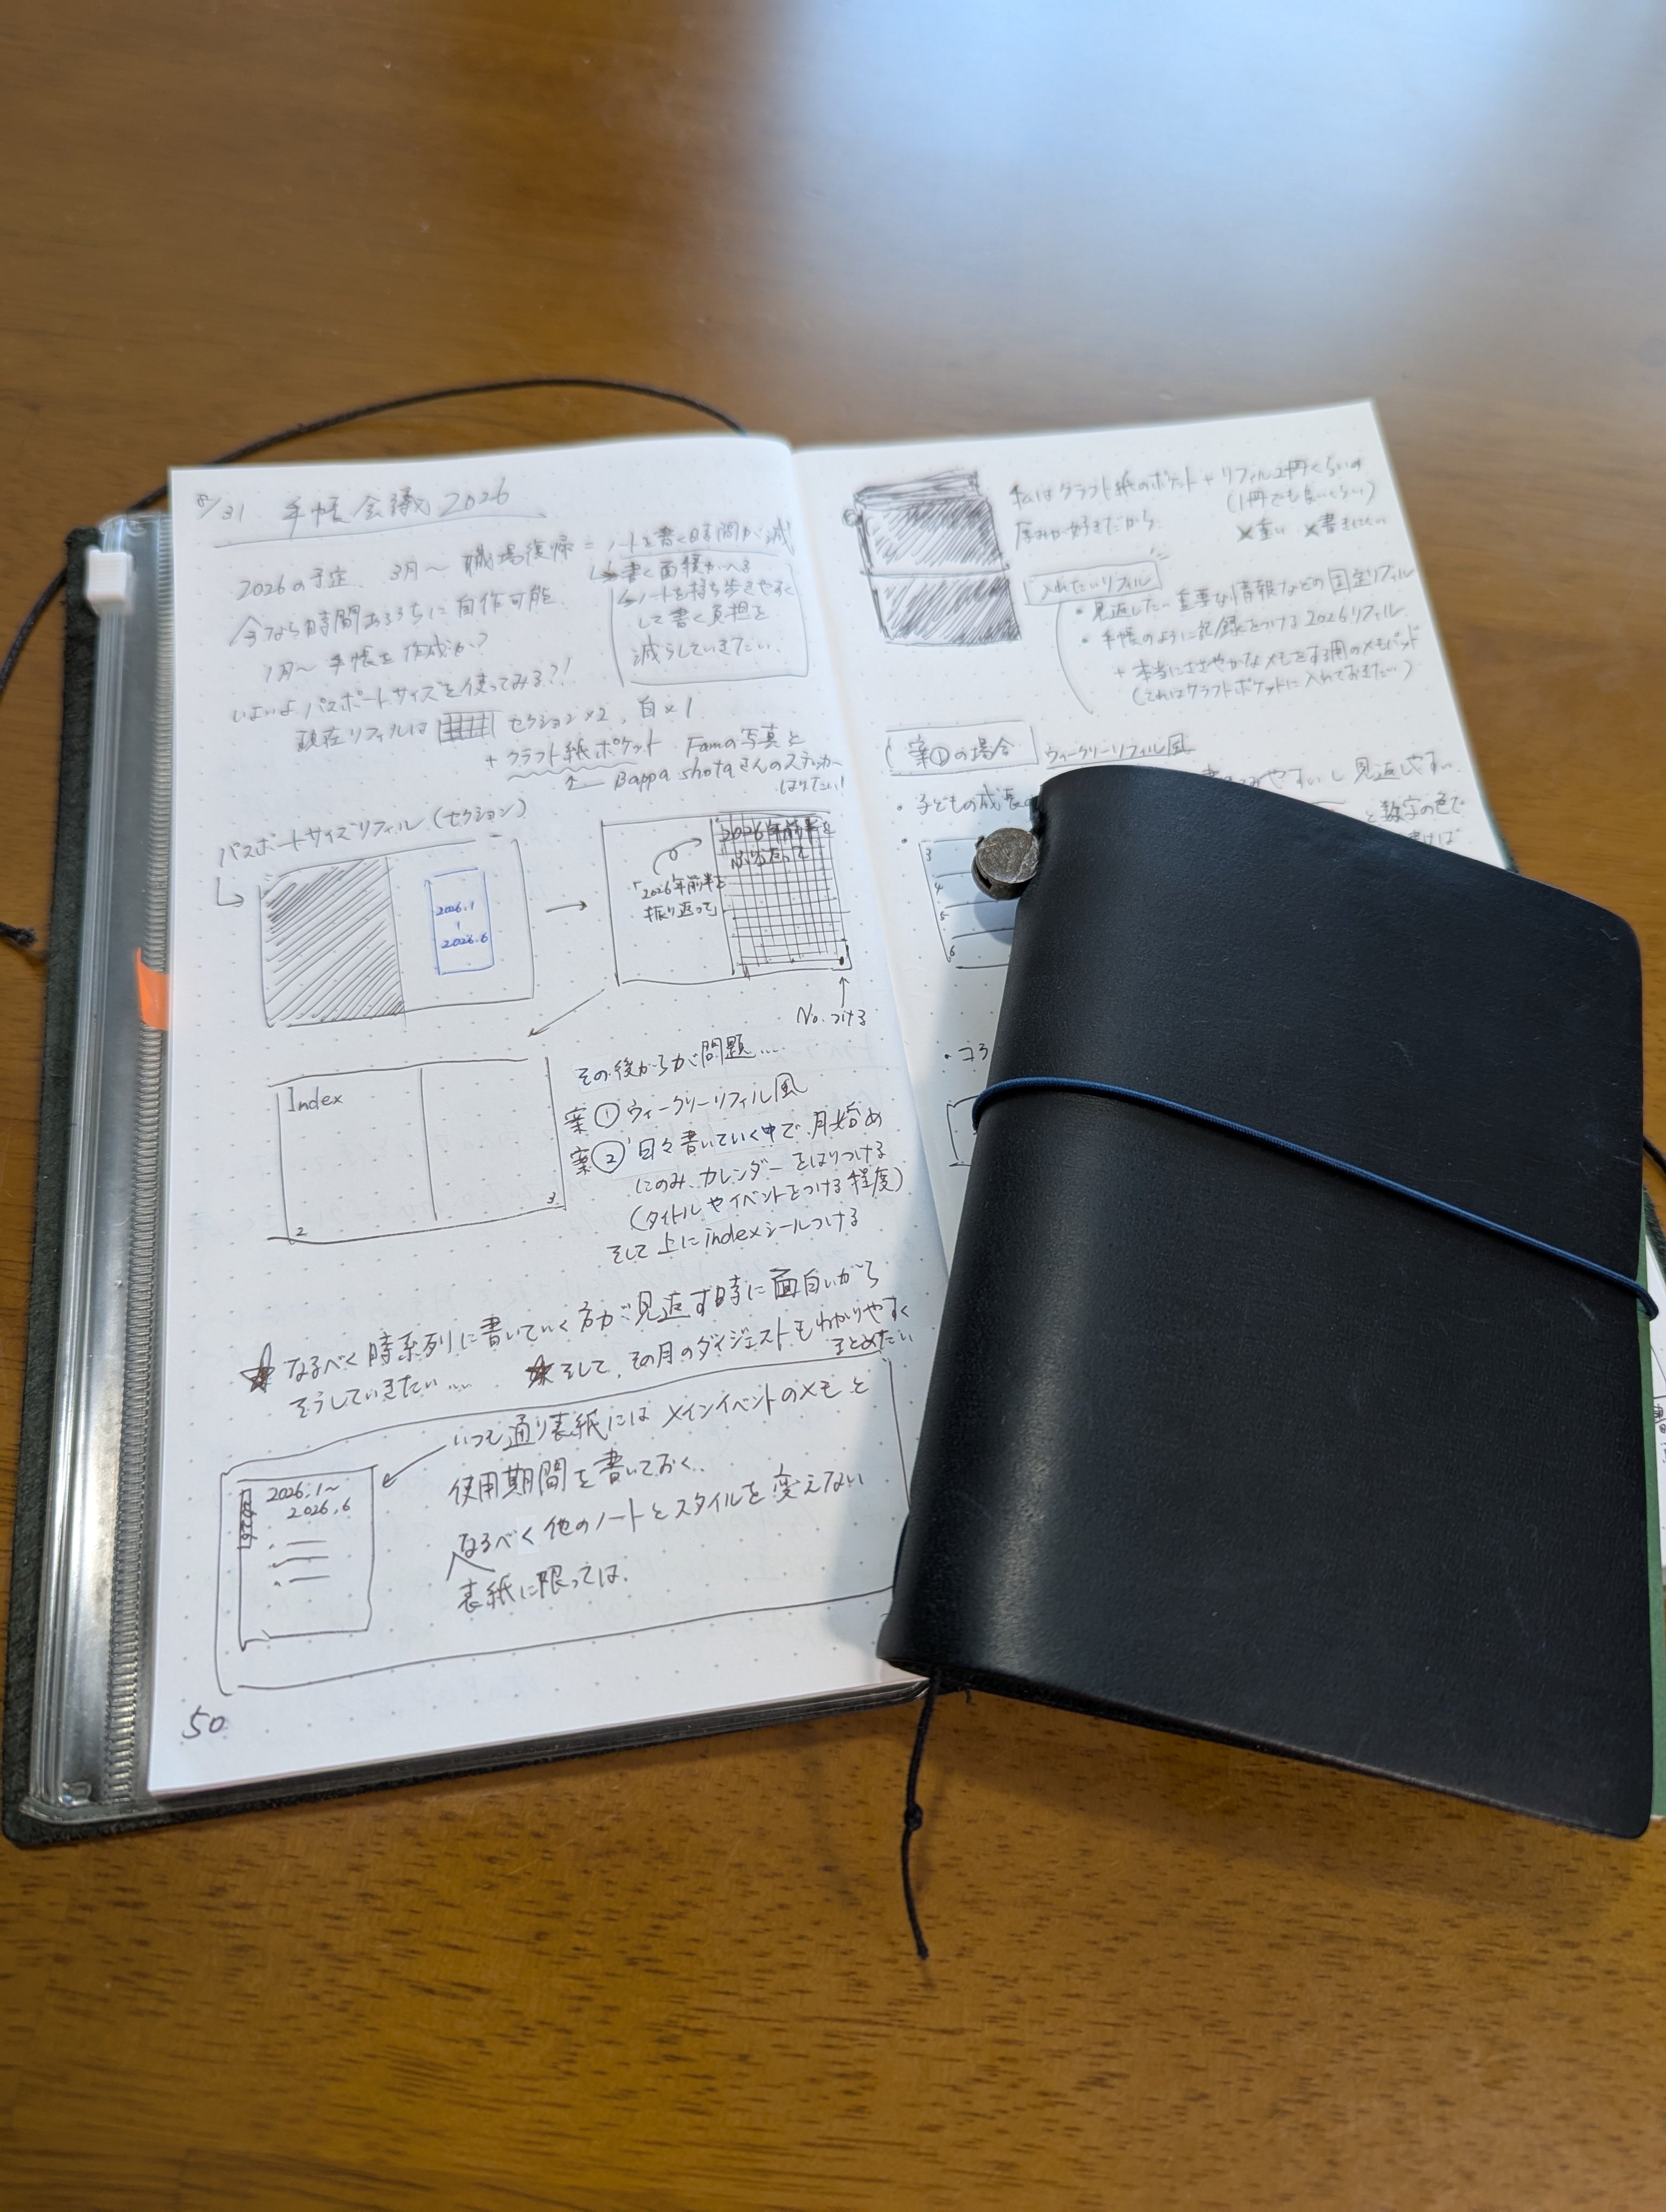 8/31 手帳会議2026
2026の予定 3月〜 職場復帰 = ノートを書く時間が減
↳書く面積がへる
↳ノートを持ち歩きやすく
して書く負担を
減らしていきたい.
今なら時間あるうちに自作可能.
1月〜手帳を作成か?
いよいよパスポートサイズを使ってみる?!
現在リフィルは セクション×2, 白×1
+ クラフト紙ポケット Famの写真と
↑ Bappa Shotaさんのステッカー
はりたい!
パスポートサイズリフィル(セクション)
2026.1
2026.6
2026年前半を
ふりかえって
「2026年前半を
振り返って」
No.つける
Index
2
3
その後からが問題....
案① ウィークリーリフィル風
案② 日々書いていく中で、月始め
にのみ、カレンダーをはりつける
(タイトルやイベントをつける程度)
そして上にindexシールつける
☆ なるべく時系列に書いていく方が見返す時に面白いから
そうしていきたい....
☆そして、その月のダイジェストもわかりやすく
まとめたい
いつも通り表紙にはメインイベントのメモと
使用期間を書いておく.
なるべく他のノートとスタイルを変えない
表紙に限っては.
2026.1〜
2026.6
50
私はクラフト紙のポケット + リフィル2冊くらいの
(1冊でも良いくらい)
厚みが好きだから.
×重い ×書きにくい
入れたいリフィル
• 見返したい重要な情報などの固定リフィル
• 手帳のように記録をつける2026リフィル
+ 本当にささやかなメモをする用のメモパッド
(これはクラフトポケットに入れておきたい)
案①の場合 ウィークリーリフィル風
みやすいし見返しやすい.
• 子どもの成長
と数字の色で
3
4
5
6